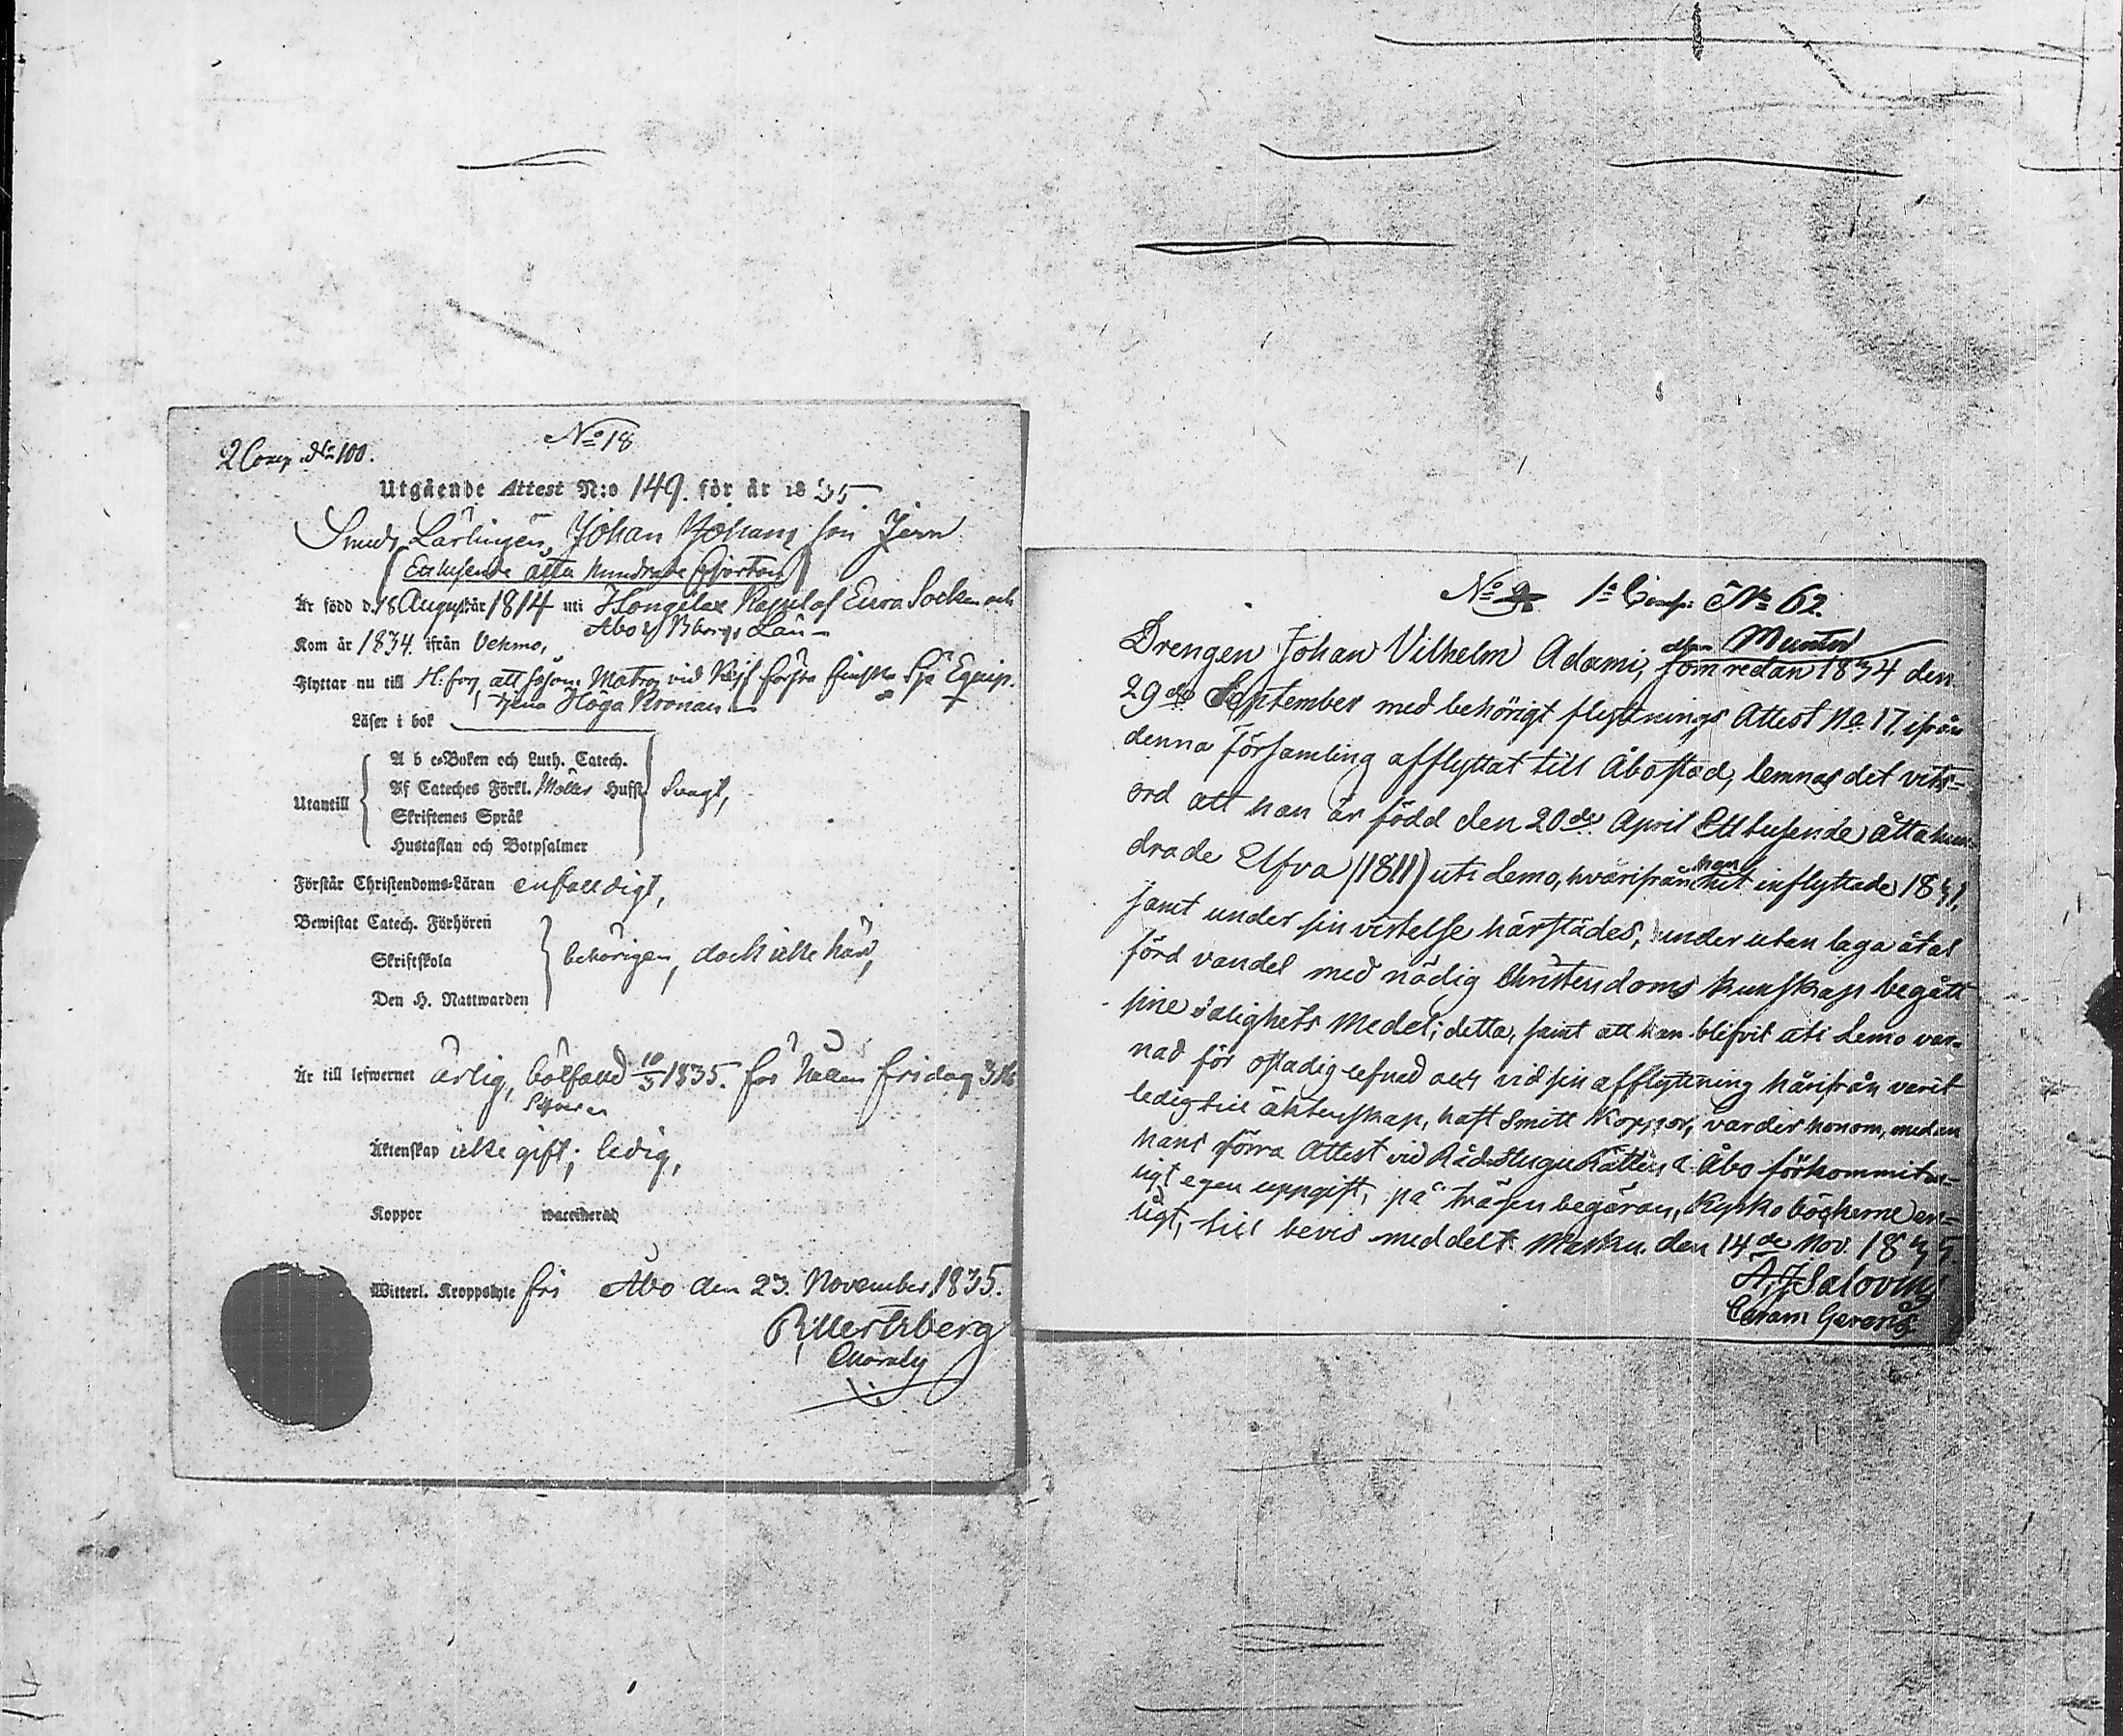 No 18
2 Comp. No 100.
Utgående Attest N:o 149. för år 1835
Smeds Lärlingen, Johan Johans son Jern
(Ettusende åtta hundrade fjorton)
Är född d. 18 August år 1814 uti Hongilax Kapel af Eura Socken och
Åbo & B:borgs Län
Kom år 1834 ifrån Vehmo,
Flyttar nu till H:fors, att såsom Matros vid första finska Sjö Equip.
tjena Höga Kronan
Läser i bok
Utantill
A b c-Boken och Luth. Catech.
Af Cateches Förkl. Möllers Hufst.
Skriftenes Språk
Hustaflan och Botpsalmer
Svagt,
Förstår Christendoms-Läran enfaldigt,
Bewistat Catech. Förhören
Skriftskola
Den H. Nattwarden
behörigen, dock icke här,
Är till lefwernet ärlig, bötfäld 10/3 1835. för
Äktenskap icke gift; ledig,
Koppor vaccinerad
Witterl. Kroppslyte fri Åbo den 23. November 1835.
No 9 1a Comp: No 62.
Munter
Drengen Johan Vilhelm Adami, som redan 1834 den
29de September med behörigt flyttnings Attest No 17. ifrån
denna Församling afflyttat till Åbo stad, lemnas det vits-
ord att han är född den 20de April Ett tusende åttahun-
drade Elfva (1811) uti Lemo, hvarifrån han hit inflyttade 1831,
samt under sin vistelse härstädes, under utan laga åtal
förd vandel med nödig Christendoms kunskap begått
sine salighets medel; detta, samt att han blifvit uti Lemo var-
nad för ostadig lefnad och vid sin afflyttning härifrån varit
ledig till äktenskap, haft smitt Koppor, varder honom, medan
hans förra Attest vid Rådstugu Rätten i Åbo förkommit en-
ligt egen uppgift, på träsen begäran, Kyrko böckerne en-
ligt, till bevis meddelt. Masku den 14de Nov. 1835
A. J. Salovius